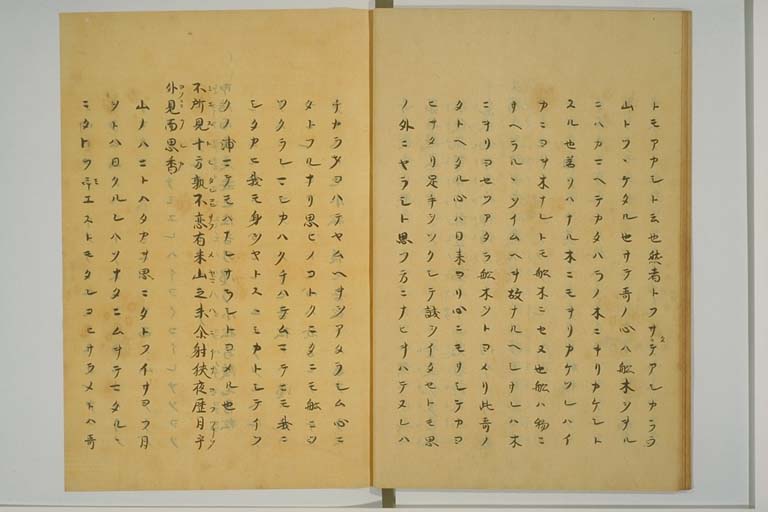 トモアカシト云也然者トフサタテアシカラヲ
山トツヽケタル也サテ哥ノ心ハ船木ヲキル
ニハカニヘテカタハラノ木ニキリカケシト
スル也着リハナル木ニモキリカケツレハイ
カニヨキ木ナレトモ船木ニセヌ也船ハ物ニ
サヘラルヽヲイムヘキ故ナルヘシサレハ木
ニキリヨセツアタラ船木ヲトヨメリ此哥ノ
タトヘタル心ハ日来ヨリ心ニモリシテカヨ
ヒキタリ足手ヲツクシテ誠ヲイタセトモ思
ノ外ニヤラシト思フ方ニナヒキハテヌレハ
チカラヲヨハテヤムヘキヲアタラシム心ニ
タトフルナリ思ヒノコトクニタニモ船ニツ
ツクラレニシカハクチハテムニテニモ我ニ
シタカヒ我モ身ヲヤトスニミカトシテイツ
クノ浦ニテモハナレサラントヨメル也
不所見十方孰不恋有米山之末尓射狭夜歴月乎
外見而思香
山ノハニトハタアサ思ニタトフイサヨフ月
ヲトハ日クルレハソナタニムキテヒタルニ
ニタトヲ㝵エストモタレコヒサラメトハ哥